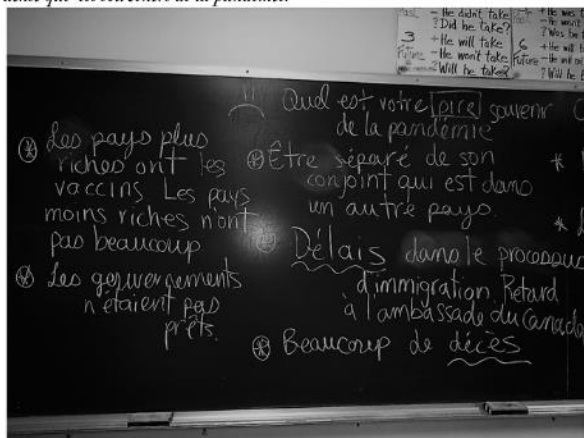 - He didn't take
? Did he take?
3
Future
+ He will take
- He won't take
? Will he take?
6
Future
Quel est votre pire souvenir
de la pandémie
* Les pays plus
riches ont les
vaccins Les pays
moins riches n'ont
pas beaucoup
* Les gouvernements
n'étaient pas
prêts.
* Être séparé de son
conjoint qui est dans
un autre pays.
* Délais dans le processus
d'immigration Retard
à l'ambassade du Canada
* Beaucoup de décès
*
*